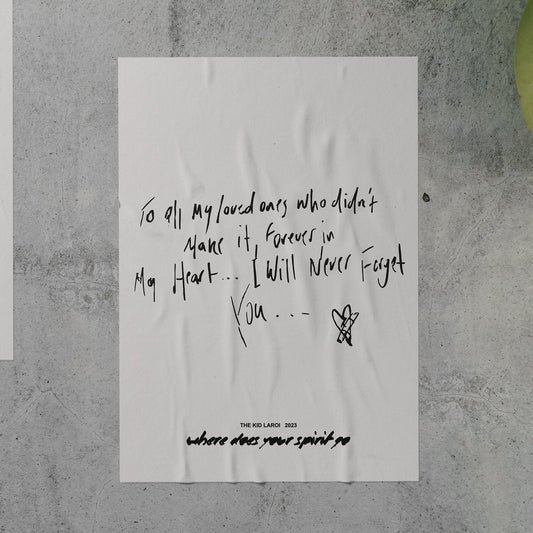 To all My loved ones who didn't
Make it, Forever in
My Heart... I Will Never Forget
You...
THE KID LAROI 2023
where does your spirit go